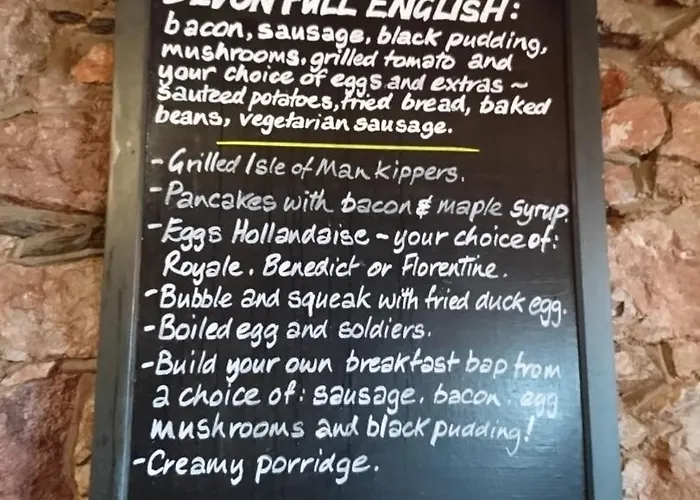 DEVON FULL ENGLISH:
bacon, sausage, black pudding,
mushrooms, grilled tomato and
your choice of eggs and extras ~
sautéed potatoes, fried bread, baked
beans, vegetarian sausage.
- Grilled Isle of Man kippers.
- Pancakes with bacon & maple syrup.
- Eggs Hollandaise - your choice of:
Royale, Benedict or Florentine.
- Bubble and squeak with fried duck egg.
- Boiled egg and soldiers.
- Build your own breakfast bap from
a choice of: sausage, bacon, egg
mushrooms and black pudding!
- Creamy porridge.